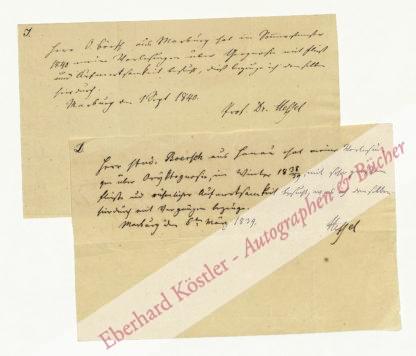 I.
Herr O. aus Marburg hat im Sommersemester
1840 meine Vorlesungen über Geognosie mit Fleiß
und Aufmerksamkeit besucht, dieß bezeuge ich demselben
hierdurch.
Marburg den 1 Sept. 1840.
Prof. Dr. Hessel
I.
Herr Stud. aus Hanau hat meine
über Oryktognosie, im Winter 1838/39, mit
Fleiße und Aufmerksamkeit besucht,
hierdurch mit Vergnügen bezeuge.
Marburg den 6ten März 1839.
Hessel
Eberhard Köstler - Autographen & Bücher